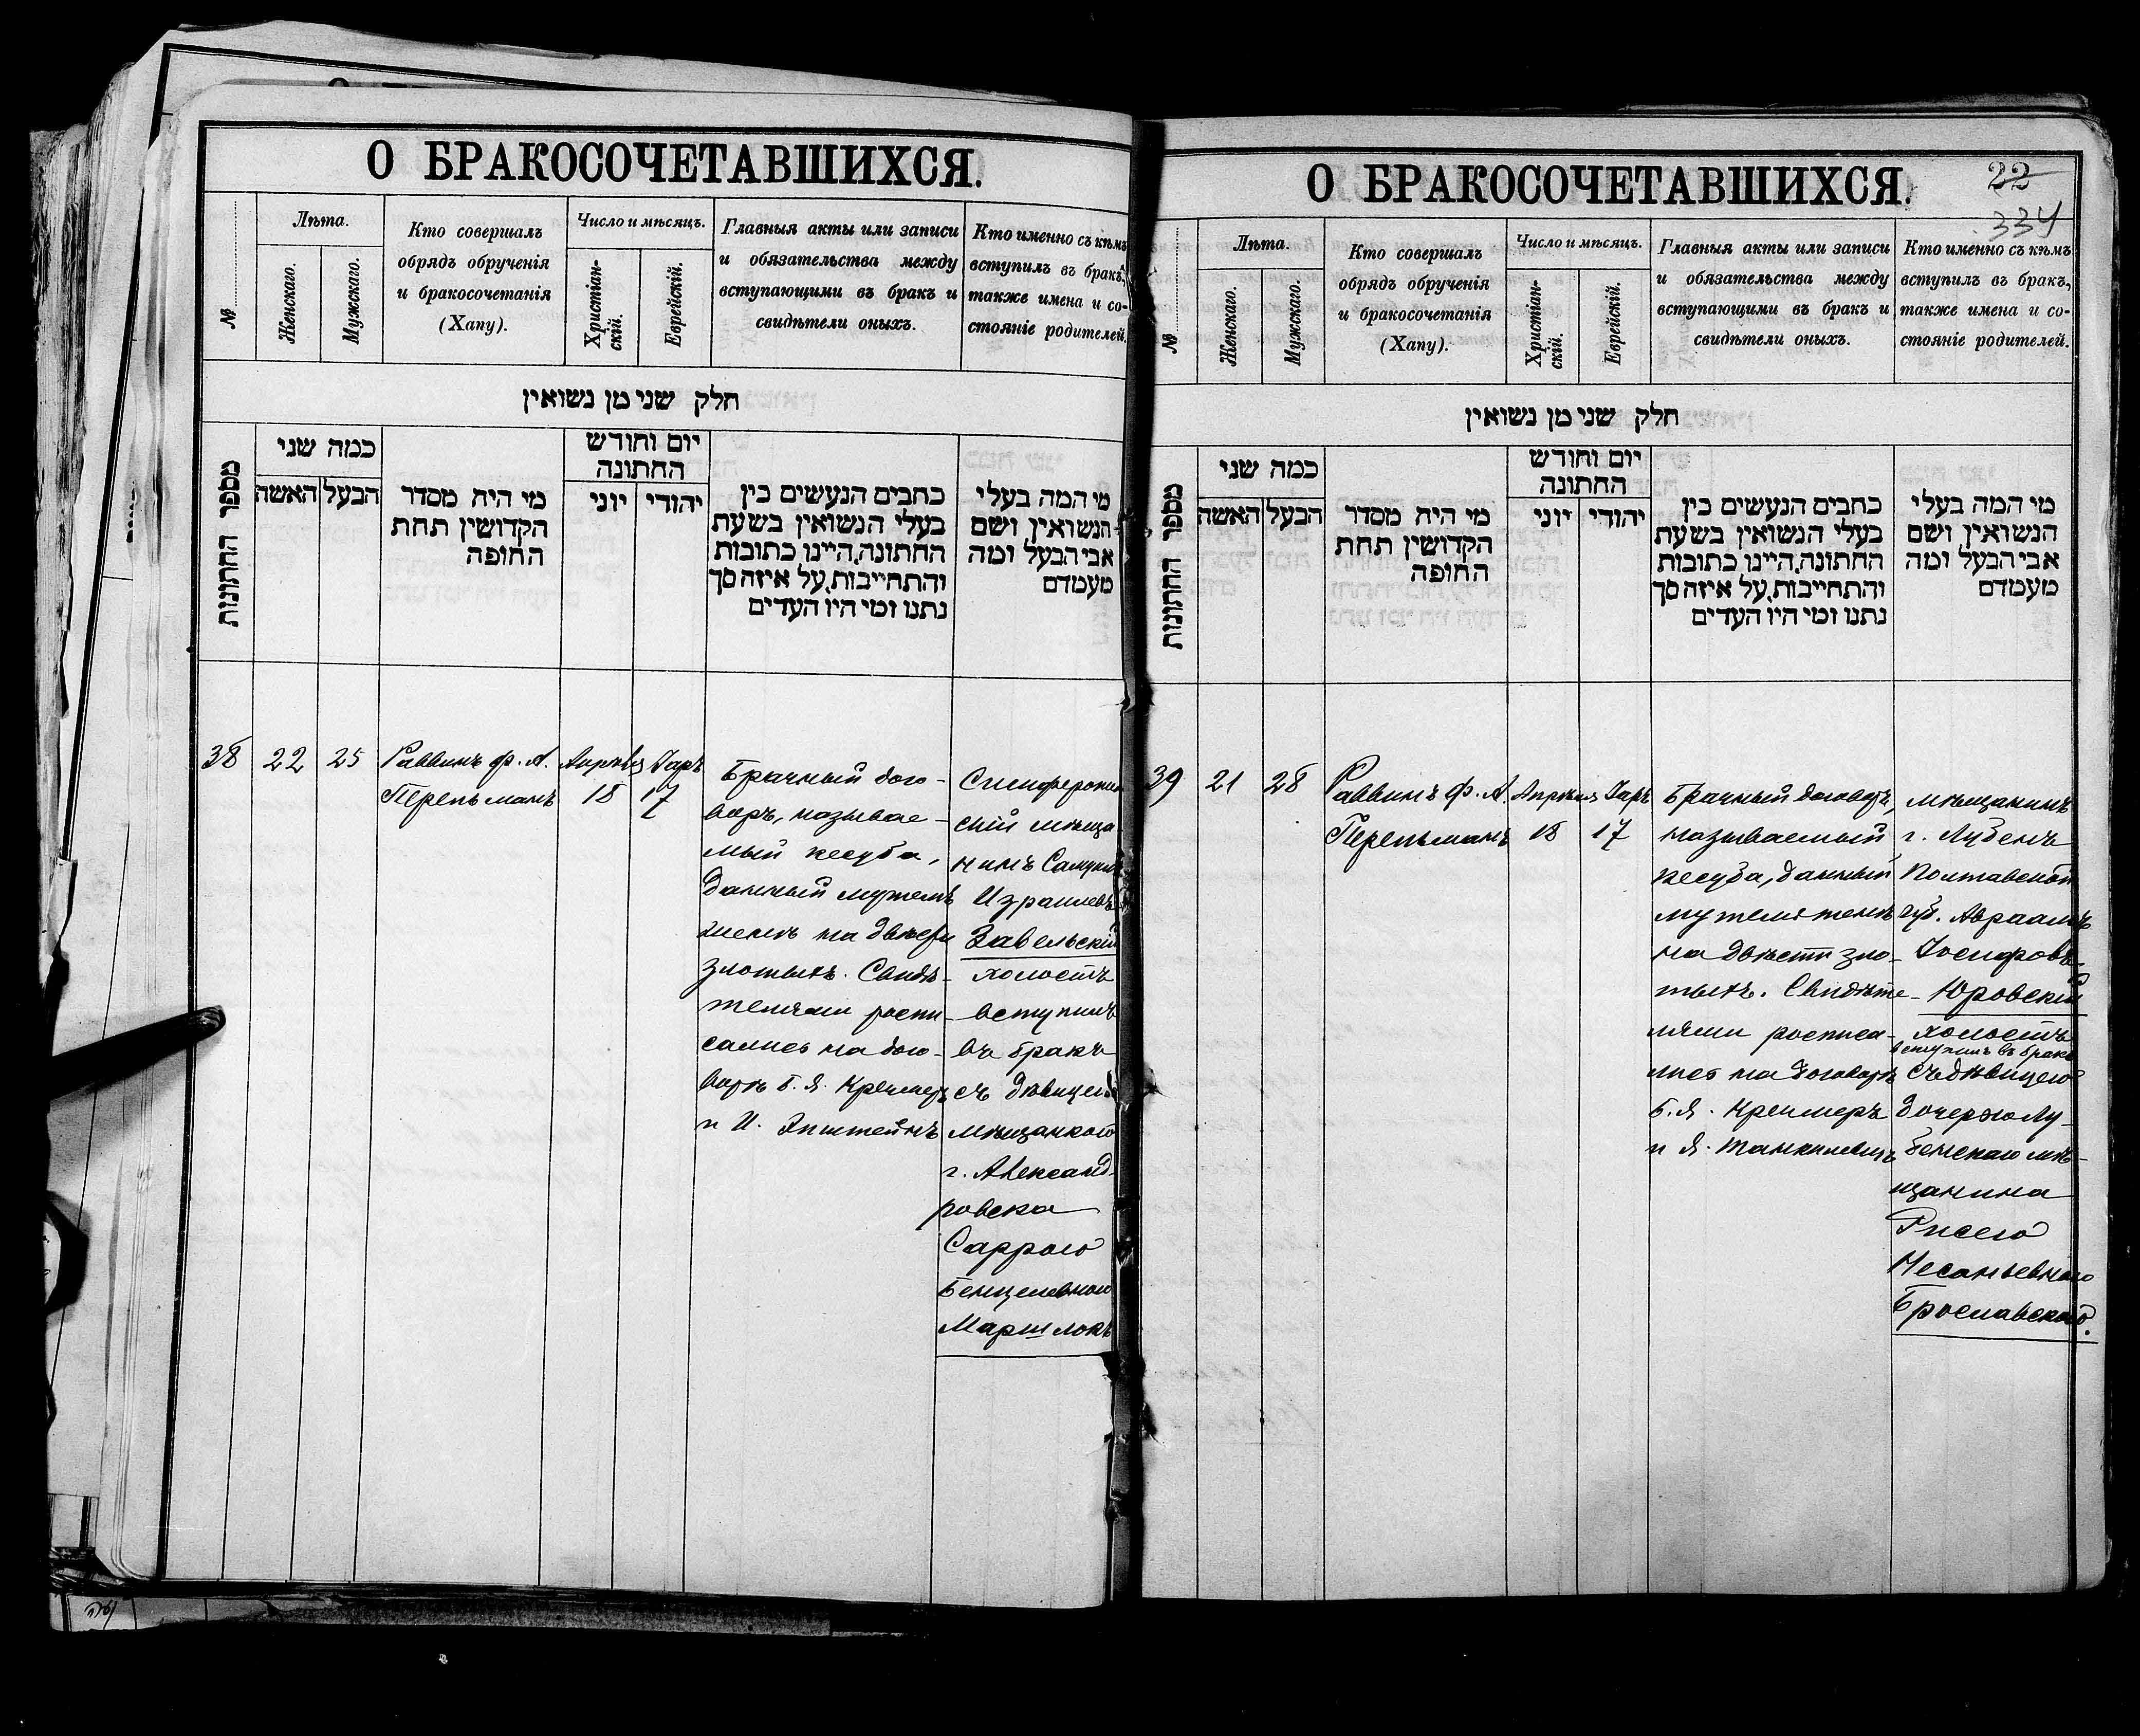 О БРАКОСОЧЕТАВШИХСЯ.
№
Лѣта.
Женскаго.
Мужскаго.
Кто совершалъ
обрядъ обрученія
и бракосочетанія
(Хапу).
Число и мѣсяцъ.
Христіан-
скій.
Еврейскій.
Главныя акты или записи
и обязательства между
вступающими въ бракъ и
свидѣтели оныхъ.
Кто именно съ кѣмъ
вступилъ въ бракъ,
также имена и со-
стояніе родителей.
חלק שני מן נשואין
מספר החתונות
כמה שני
האשה
הבעל
מי היה מסדר
הקדושין תחת
החופה
יום וחודש
החתונה
יוני
יהודי
כתבים הנעשים בין
בעלי הנשואין בשעת
החתונה, היינו כתובות
והתחייבות, על איזה סך
נתנו ומי היו העדים
מי המה בעלי
הנשואין ושם
אבי הבעל ומה
מעמדם
38
22
25
Раввинъ ф. А.
Перельманъ
Апрѣль
18
Іаръ
17
Брачный дого-
воръ, называе-
мый кесуба,
данный мужемъ
женѣ на двѣсти
злотыхъ. Свидѣ-
телями распи-
сались на дого-
ворѣ Б. Я. Кремеръ
и И. Эпштейнъ
Симферополь
скій мѣща
нинъ Самуилъ
Израилевъ
Завельскій
холостъ
вступилъ
въ бракъ
съ дѣвицею
мѣщанкою
г. Александ-
ровска
Саррою
Бенцелевною
Маршлокъ
О БРАКОСОЧЕТАВШИХСЯ.
22
334
№
Лѣта.
Женскаго.
Мужскаго.
Кто совершалъ
обрядъ обрученія
и бракосочетанія
(Хапу).
Число и мѣсяцъ.
Христіан-
скій.
Еврейскій.
Главныя акты или записи
и обязательства между
вступающими въ бракъ и
свидѣтели оныхъ.
Кто именно съ кѣмъ
вступилъ въ бракъ,
также имена и со-
стояніе родителей.
חלק שני מן נשואין
מספר החתונות
כמה שני
האשה
הבעל
מי היה מסדר
הקדושין תחת
החופה
יום וחודש
החתונה
יוני
יהודי
כתבים הנעשים בין
בעלי הנשואין בשעת
החתונה, היינו כתובות
והתחייבות, על איזה סך
נתנו ומי היו העדים
מי המה בעלי
הנשואין ושם
אבי הבעל ומה
מעמדם
39
21
28
Раввинъ ф. А.
Перельманъ
Апрѣль
18
Іаръ
17
Брачный договоръ,
называемый
кесуба, данный
мужемъ женѣ
на двѣсти зло-
тыхъ. Свидѣте-
лями росписа-
лись на договорѣ
Б. Я. Кремеръ
и Я. Танкилевичъ
мѣщанинъ
г. Лубенъ
Полтавской
губ. Авраамъ
Іосифовъ
Юровскій
холостъ
вступилъ въ бракъ
съ дѣвицею
дочерью Лу-
бенскаго мѣ-
щанина
Рисею
Несаньевною
Брославской.